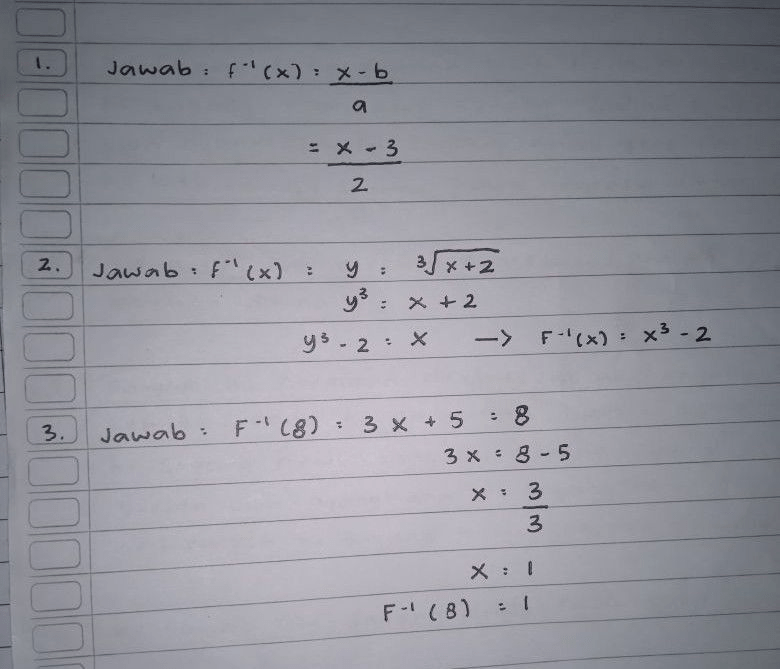 1. Jawab : f⁻¹(x) : x - b / a
= x - 3 / 2
2. Jawab : f⁻¹(x) : y : ³√x+2
y³ : x + 2
y³ - 2 : x —> F⁻¹(x) : x³ - 2
3. Jawab : F⁻¹(8) : 3x + 5 : 8
3x : 8 - 5
x : 3 / 3
x : 1
F⁻¹(8) : 1